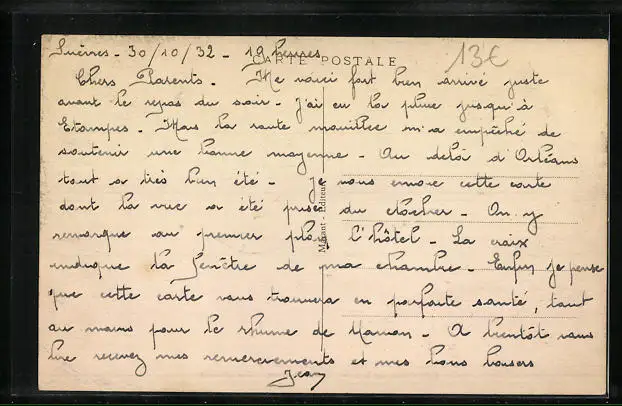 Suèvres - 30/10/32 - 19 heures
13€
CARTE POSTALE
Chers Parents - Me voici fort bien arrivé juste
avant le repas du soir - J'ai eu la pluie jusqu'à
Etampes - Mais la route mouillée m'a empêché de
soutenir une bonne moyenne - Au delà d'Orléans
tout a très bien été - Je vous envoie cette carte
dont la vue a été prise du clocher - On y
remarque au premier plan l'hôtel - La croix
indique la fenêtre de ma chambre - Enfin je pense
que cette carte vous trouvera en parfaite santé, tout
au moins pour le rhume de Maman - A bientôt vous
lire recevez mes remerciements et mes bons baisers
Jean
Editeur